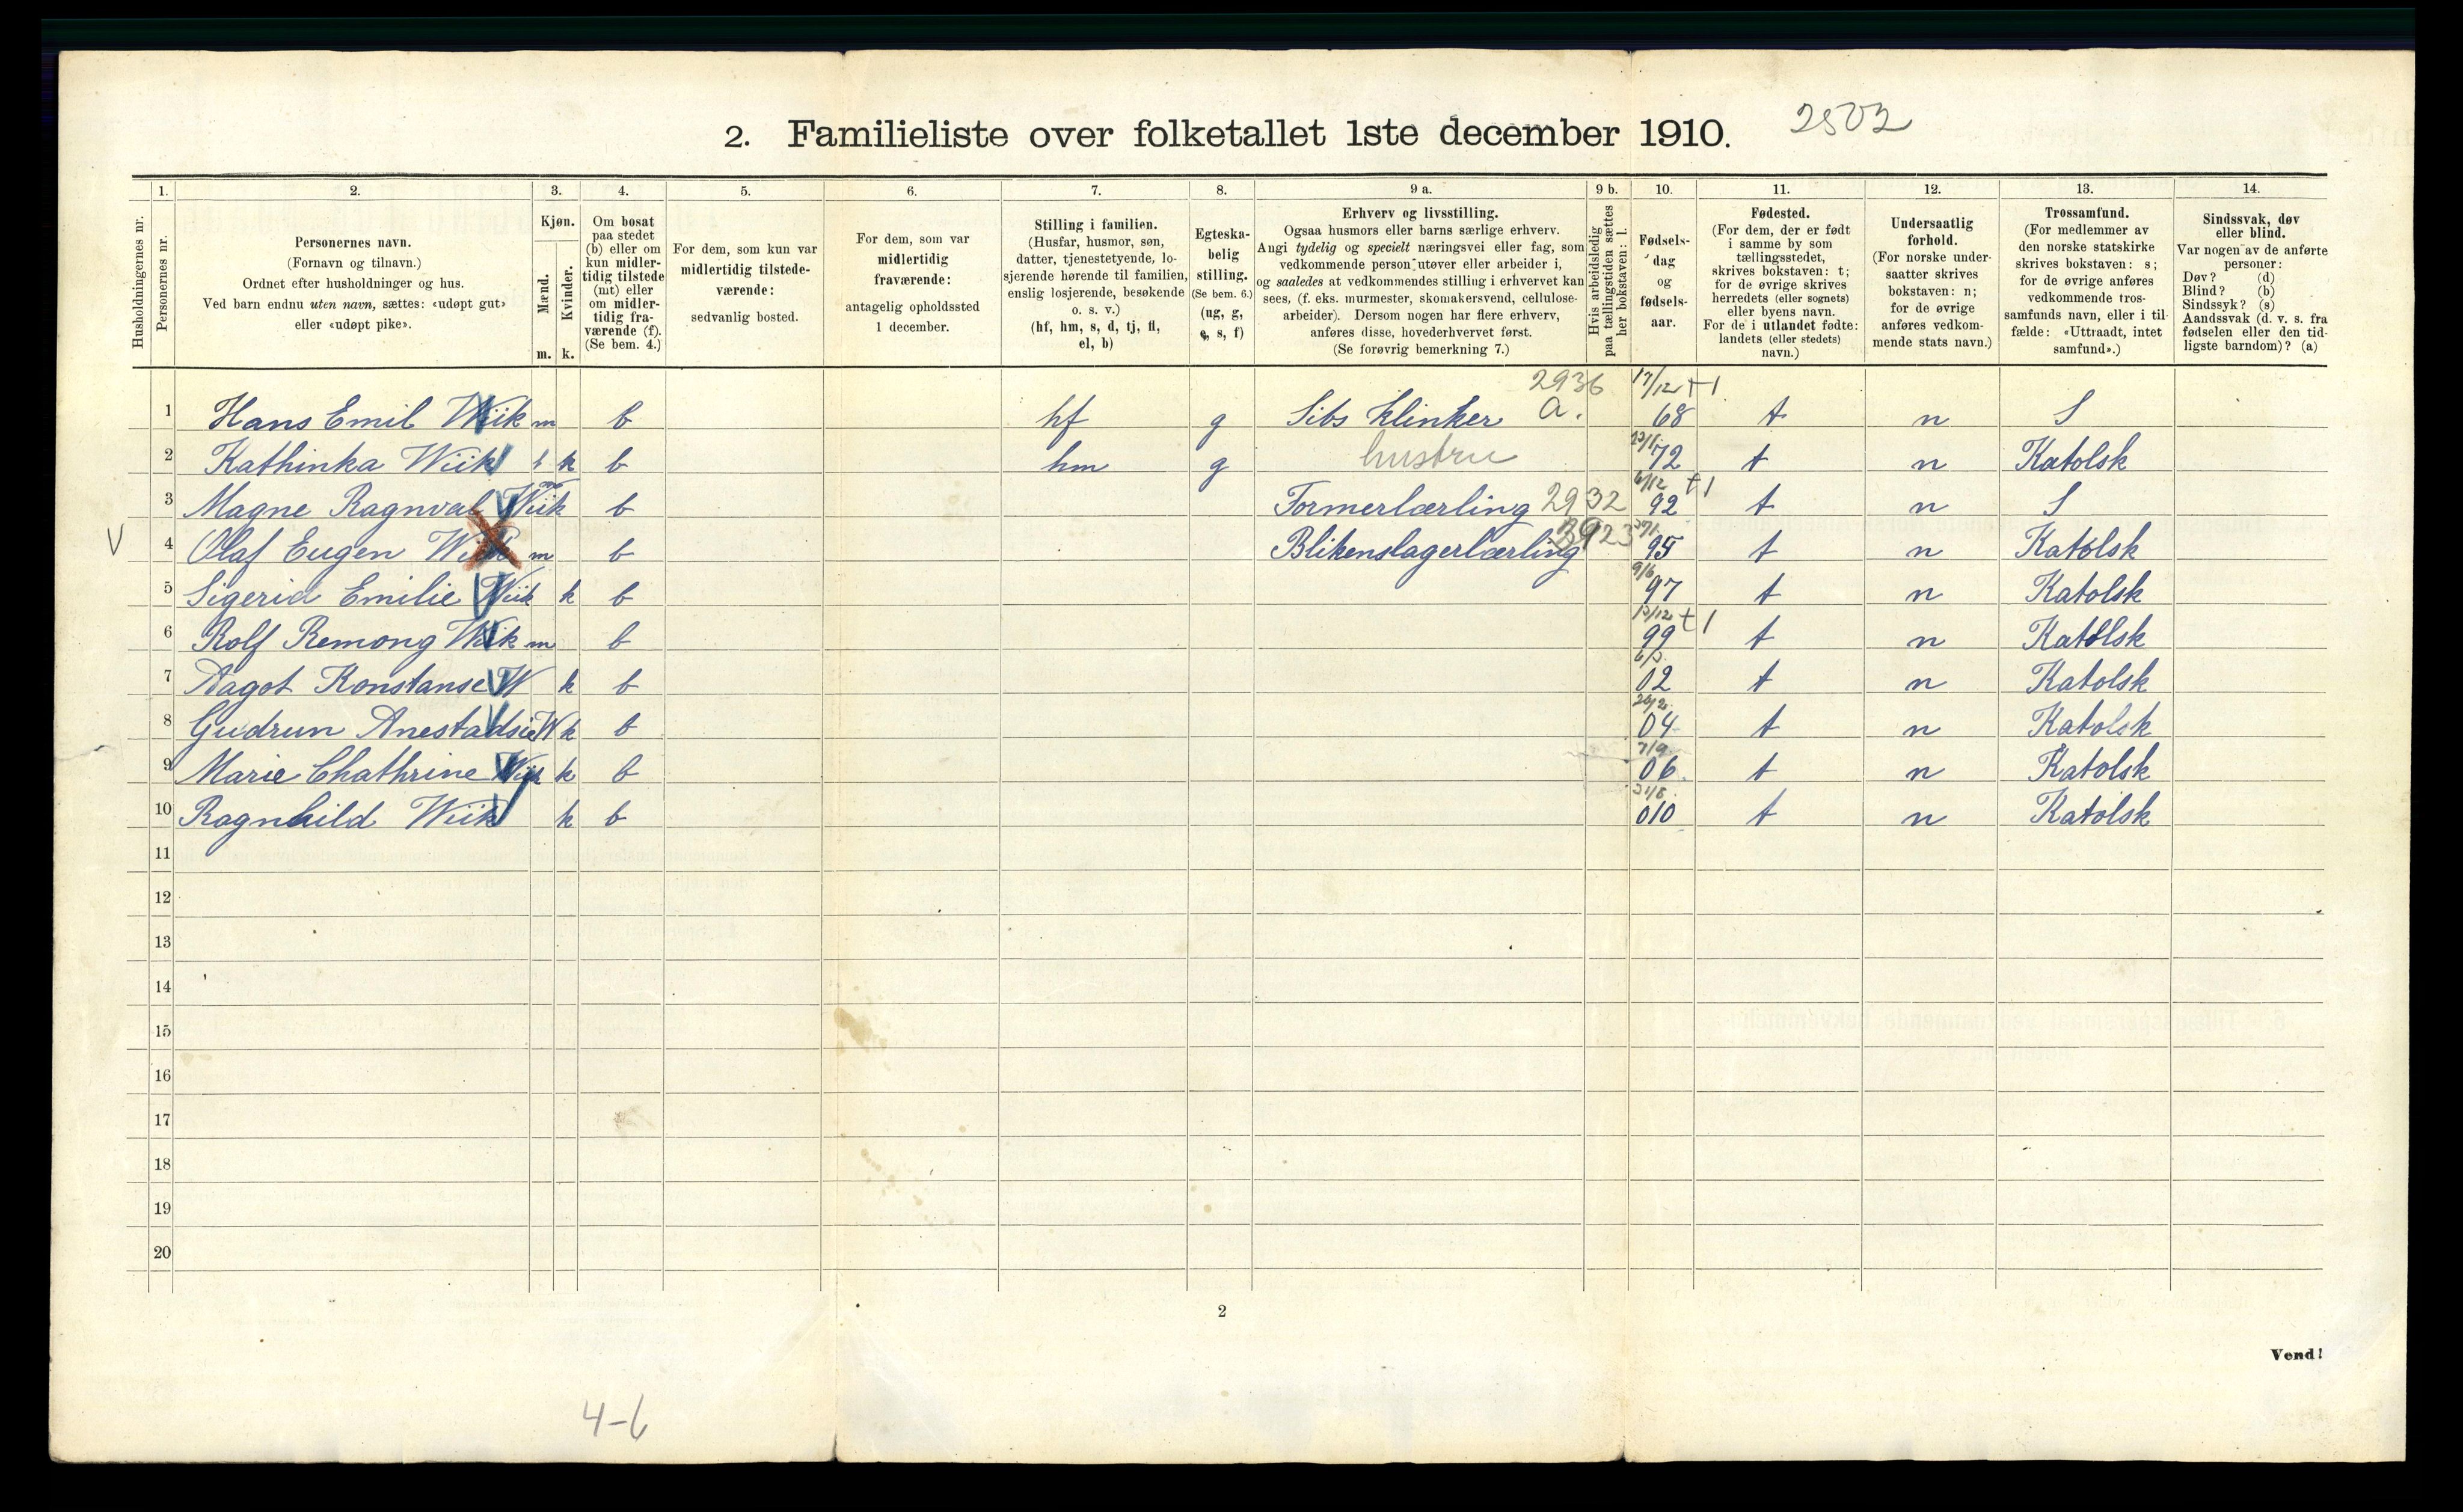 2. Familieliste over folketallet 1ste december 1910. 2502
Husholdningernes nr.
1. Personernes nr.
2. Personernes navn. (Fornavn og tilnavn.) Ordnet efter husholdninger og hus. Ved barn endnu uten navn, sættes: «udøpt gut» eller «udøpt pike».
3. Kjøn. Mænd. m. Kvinder. k.
4. Om bosat paa stedet (b) eller om kun midlertidig tilstede (mt) eller om midlertidig fraværende (f). (Se bem. 4.)
5. For dem, som kun var midlertidig tilstedeværende: sedvanlig bosted.
6. For dem, som var midlertidig fraværende: antagelig opholdssted 1 december.
7. Stilling i familien. (Husfar, husmor, søn, datter, tjenestetyende, losjerende hørende til familien, enslig losjerende, besøkende o. s. v.) (hf, hm, s, d, tj, fl, el, b)
8. Egteskabelig stilling. (Se bem. 6.) (ug, g, e, s, f)
9 a. Erhverv og livsstilling. Ogsaa husmors eller barns særlige erhverv. Angi tydelig og specielt næringsvei eller fag, som vedkommende person utøver eller arbeider i, og saaledes at vedkommendes stilling i erhvervet kan sees, (f. eks. murmester, skomakersvend, cellulosearbeider). Dersom nogen har flere erhverv, anføres disse, hovederhvervet først. (Se forøvrig bemerkning 7.)
9 b. Hvis arbeidsledig paa tællingstiden sættes her bokstaven: l.
10. Fødselsdag og fødselsaar.
11. Fødested. (For dem, der er født i samme by som tællingsstedet, skrives bokstaven: t; for de øvrige skrives herredets (eller sognets) eller byens navn. For de i utlandet fødte: landets (eller stedets) navn.)
12. Undersaatlig forhold. (For norske undersaatter skrives bokstaven: n; for de øvrige anføres vedkommende stats navn.)
13. Trossamfund. (For medlemmer av den norske statskirke skrives bokstaven: s; for de øvrige anføres vedkommende trossamfunds navn, eller i tilfælde: «Uttraadt, intet samfund».)
14. Sindssvak, døv eller blind. Var nogen av de anførte personer: Døv? (d) Blind? (b) Sindssyk? (s) Aandssvak (d. v. s. fra fødselen eller den tidligste barndom)? (a)
1 Hans Emil Wiik m b hf g Sibs Klinker 2936 a. 17/12 68 +1 t n S
2 Kathinka Wiik k b hm g hustru 72 t n Katolsk
3 Magne Ragnval Wiik m b Formerlærling 2932 6/12 92 +1 t n S
V 4 Olaf Eugen Wiik m b Blikenslagerlærling 2923 95 t n Katolsk
5 Sigerid Emilie Wiik k b 9/6 97 t n Katolsk
6 Rolf Remong Wiik m b 13/12 99 +1 t n Katolsk
7 Dagot Konstanse W k b 02 t n Katolsk
8 Gudrun Anestadsie W k b 04 t n Katolsk
9 Marie Chathrine Wiik k b 7/9 06. t n Katolsk
10 Ragnhild Wiik k b 010 t n Katolsk
11
12
13
14
15
16
17
18
19
20
2
Vend!
4-6